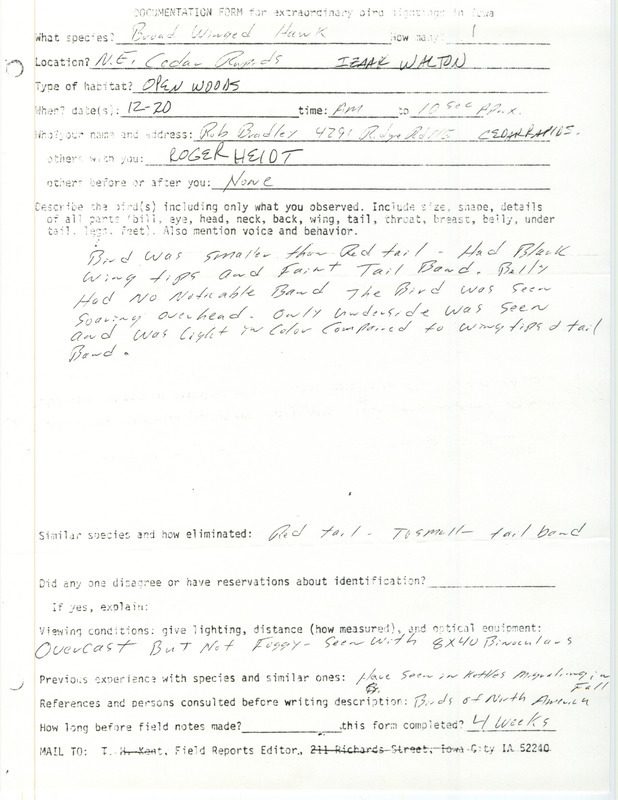 DOCUMENTATION FORM for extraordinary bird sightings in Iowa
What species? Broad Winged Hawk how many? 1
Location? N.E. Cedar Rapids IZAAK WALTON
Type of habitat? OPEN WOODS
When? date(s): 12-20 time: Am to 10 sec Appx.
Who? your name and address: Rob Bradley 4291 Ridge Rd NE CEDAR RAPIDS.
others with you: ROGER HEIDT
others before or after you: None
Describe the bird(s) including only what you observed. Include size, shape, details
of all parts (bill, eye, head, neck, back, wing, tail, throat, breast, belly, under
tail, legs, feet). Also mention voice and behavior.
Bird was smaller than Red tail - Had Black
wing tips and Faint Tail Band. Belly
Had No Noticable Band The Bird was seen
Soaring overhead. Only underside was seen
and was Light in Color Compared to wing tips & tail
Band.
Similar species and how eliminated: Red tail - To small - tail band
Did any one disagree or have reservations about identification?
If yes, explain:
Viewing conditions: give lighting, distance (how measured), and optical equipment:
Overcast But Not Foggy - Seen with 8X40 Binoculars
Previous experience with species and similar ones: Have Seen in Kettles Migrating in
Fall
References and persons consulted before writing description: Birds of North America
How long before field notes made? this form completed? 4 weeks
MAIL TO: T. H. Kent, Field Reports Editor, 211 Richards Street, Iowa City IA 52240